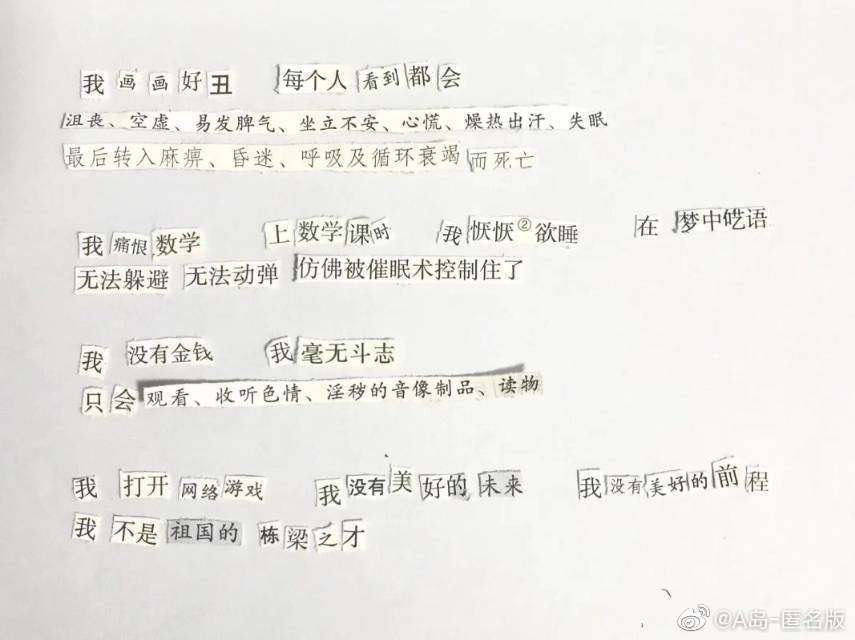 我画画好丑 每个人看到都会
沮丧、空虚、易发脾气、坐立不安、心慌、燥热出汗、失眠
最后转入麻痹、昏迷、呼吸及循环衰竭而死亡
我痛恨数学 上数学课时 我恹恹②欲睡 在梦中呓语
无法躲避 无法动弹 仿佛被催眠术控制住了
我没有金钱 我毫无斗志
只会观看、收听色情、淫秽的音像制品、读物
我打开网络游戏 我没有美好的未来 我没有美好的前程
我不是祖国的栋梁之才
@A岛-匿名版